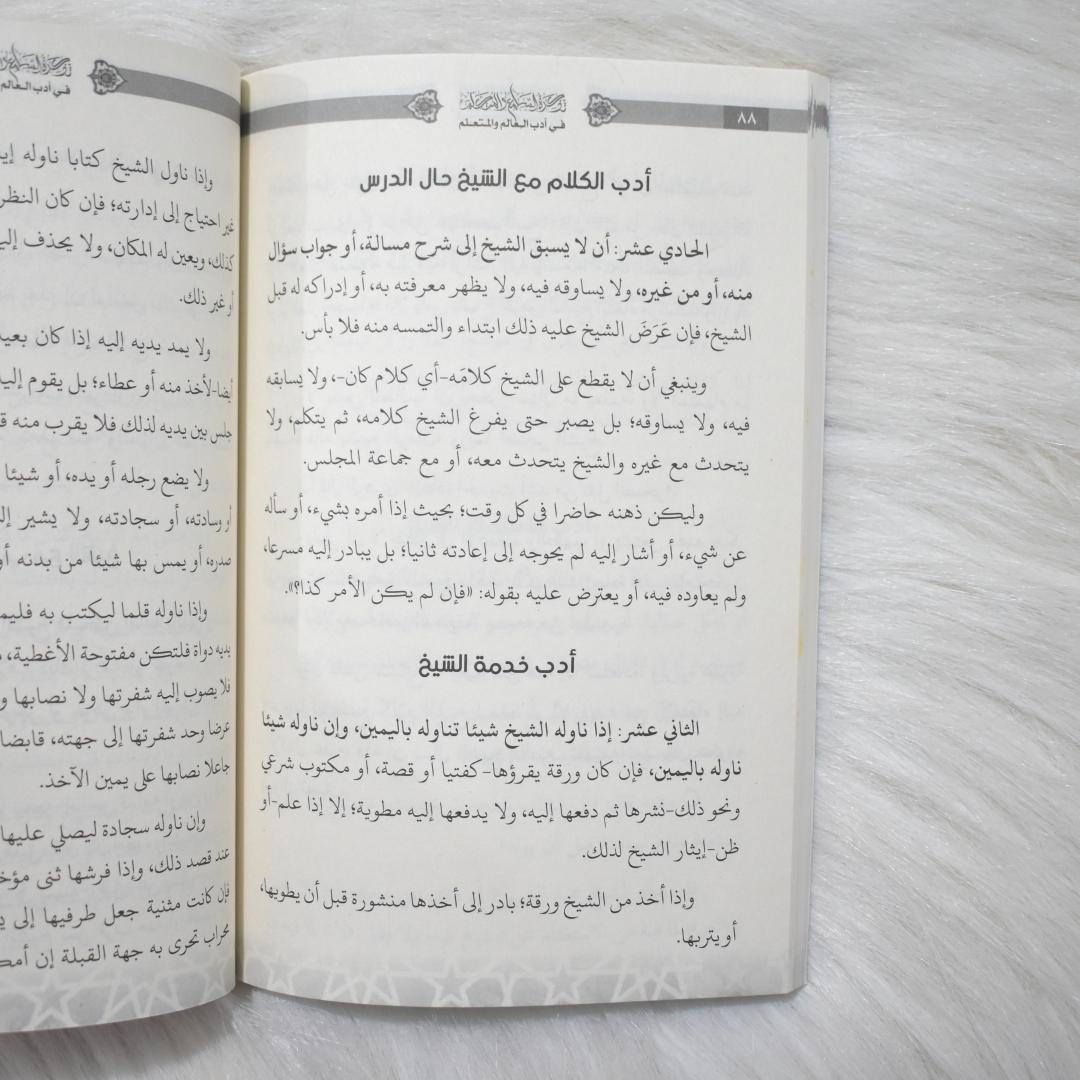 ٨٨
في أدب العالم والمتعلم
أدب الكلام مع الشيخ حال الدرس
الحادي عشر: أن لا يسبق الشيخ إلى شرح مسالة، أو جواب سؤال
منه، أو من غيره، ولا يساوقه فيه، ولا يظهر معرفته به، أو إدراكه له قبل
الشيخ، فإن عَرَضَ الشيخ عليه ذلك ابتداء والتمسه منه فلا بأس.
وينبغي أن لا يقطع على الشيخ كلامَه-أي كلام كان-، ولا يسابقه
فيه، ولا يساوقه؛ بل يصبر حتى يفرغ الشيخ كلامه، ثم يتكلم، ولا
يتحدث مع غيره والشيخ يتحدث معه، أو مع جماعة المجلس.
وليكن ذهنه حاضرا في كل وقت؛ بحيث إذا أمره بشيء، أو سأله
عن شيء، أو أشار إليه لم يحوجه إلى إعادته ثانيا؛ بل يبادر إليه مسرعا،
ولم يعاوده فيه، أو يعترض عليه بقوله: «فإن لم يكن الأمر كذا؟».
أدب خدمة الشيخ
الثاني عشر: إذا ناوله الشيخ شيئا تناوله باليمين، وإن ناوله شيئا
ناوله باليمين، فإن كان ورقة يقرؤها-كفتيا أو قصة، أو مكتوب شرعي
ونحو ذلك-نشرها ثم دفعها إليه، ولا يدفعها إليه مطوية؛ إلا إذا علم-أو
ظن-إيثار الشيخ لذلك.
وإذا أخذ من الشيخ ورقة؛ بادر إلى أخذها منشورة قبل أن يطويها،
أو يتربها.
في أدب العالم
وإذا ناول الشيخ كتابا ناوله
غير احتياج إلى إدارته؛ فإن كان النظر
كذلك، ويعين له المكان، ولا يحذف
أو غير ذلك.
ولا يمد يديه إليه إذا كان
أيضا-لأخذ منه أو عطاء؛ بل يقوم
جلس بين يديه لذلك فلا يقرب منه
ولا يضع رجله أو يده، أو شيئا
أو وسادته، أو سجادته، ولا يشير
صدره، أو يمس بها شيئا من بدنه
وإذا ناوله قلما ليكتب به
يديه دواة فلتكن مفتوحة الأغطية،
فلا يصوب إليه شفرتها ولا نصابها
عرضا وحد شفرتها إلى جهته، قابضا
جاعلا نصابها على يمين الآخذ.
وإن ناوله سجادة ليصلي عليها
عند قصد ذلك، وإذا فرشها ثنى
فإن كانت مثنية جعل طرفيها إلى
محراب تحرى به جهة القبلة إن